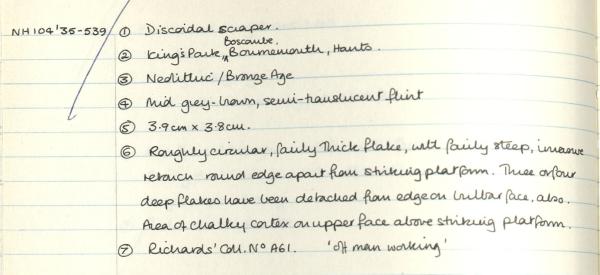 NH104'35-539 ① Discoidal scraper.
Boscombe.
② King's Park, ^ Bournemouth, Hants.
③ Neolithic / Bronze Age
④ Mid grey-brown, semi-translucent flint
⑤ 3.9cm × 3.8cm.
⑥ Roughly circular, fairly thick flake, with fairly steep, invasive
retouch round edge apart from striking platform. Three or four
deep flakes have been detached from edge on bulbar face, also.
Area of chalky cortex on upper face above striking platform.
⑦ Richards' Coll. Nº A61. 'off man working'